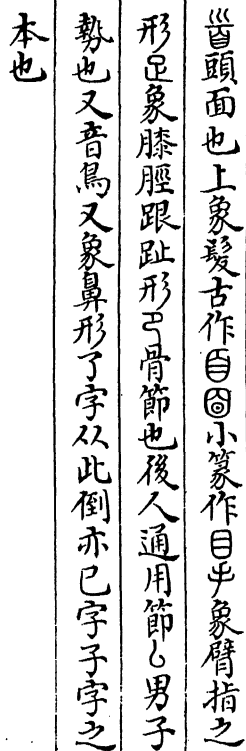 𩠐頭面也上象髮古作𦣻囼小篆作目手象臂指之
形足象膝脛跟趾形㔾骨節也後人通用節乚男子
勢也又音鳥又象鼻形了字从此倒亦巳字子字之
本也